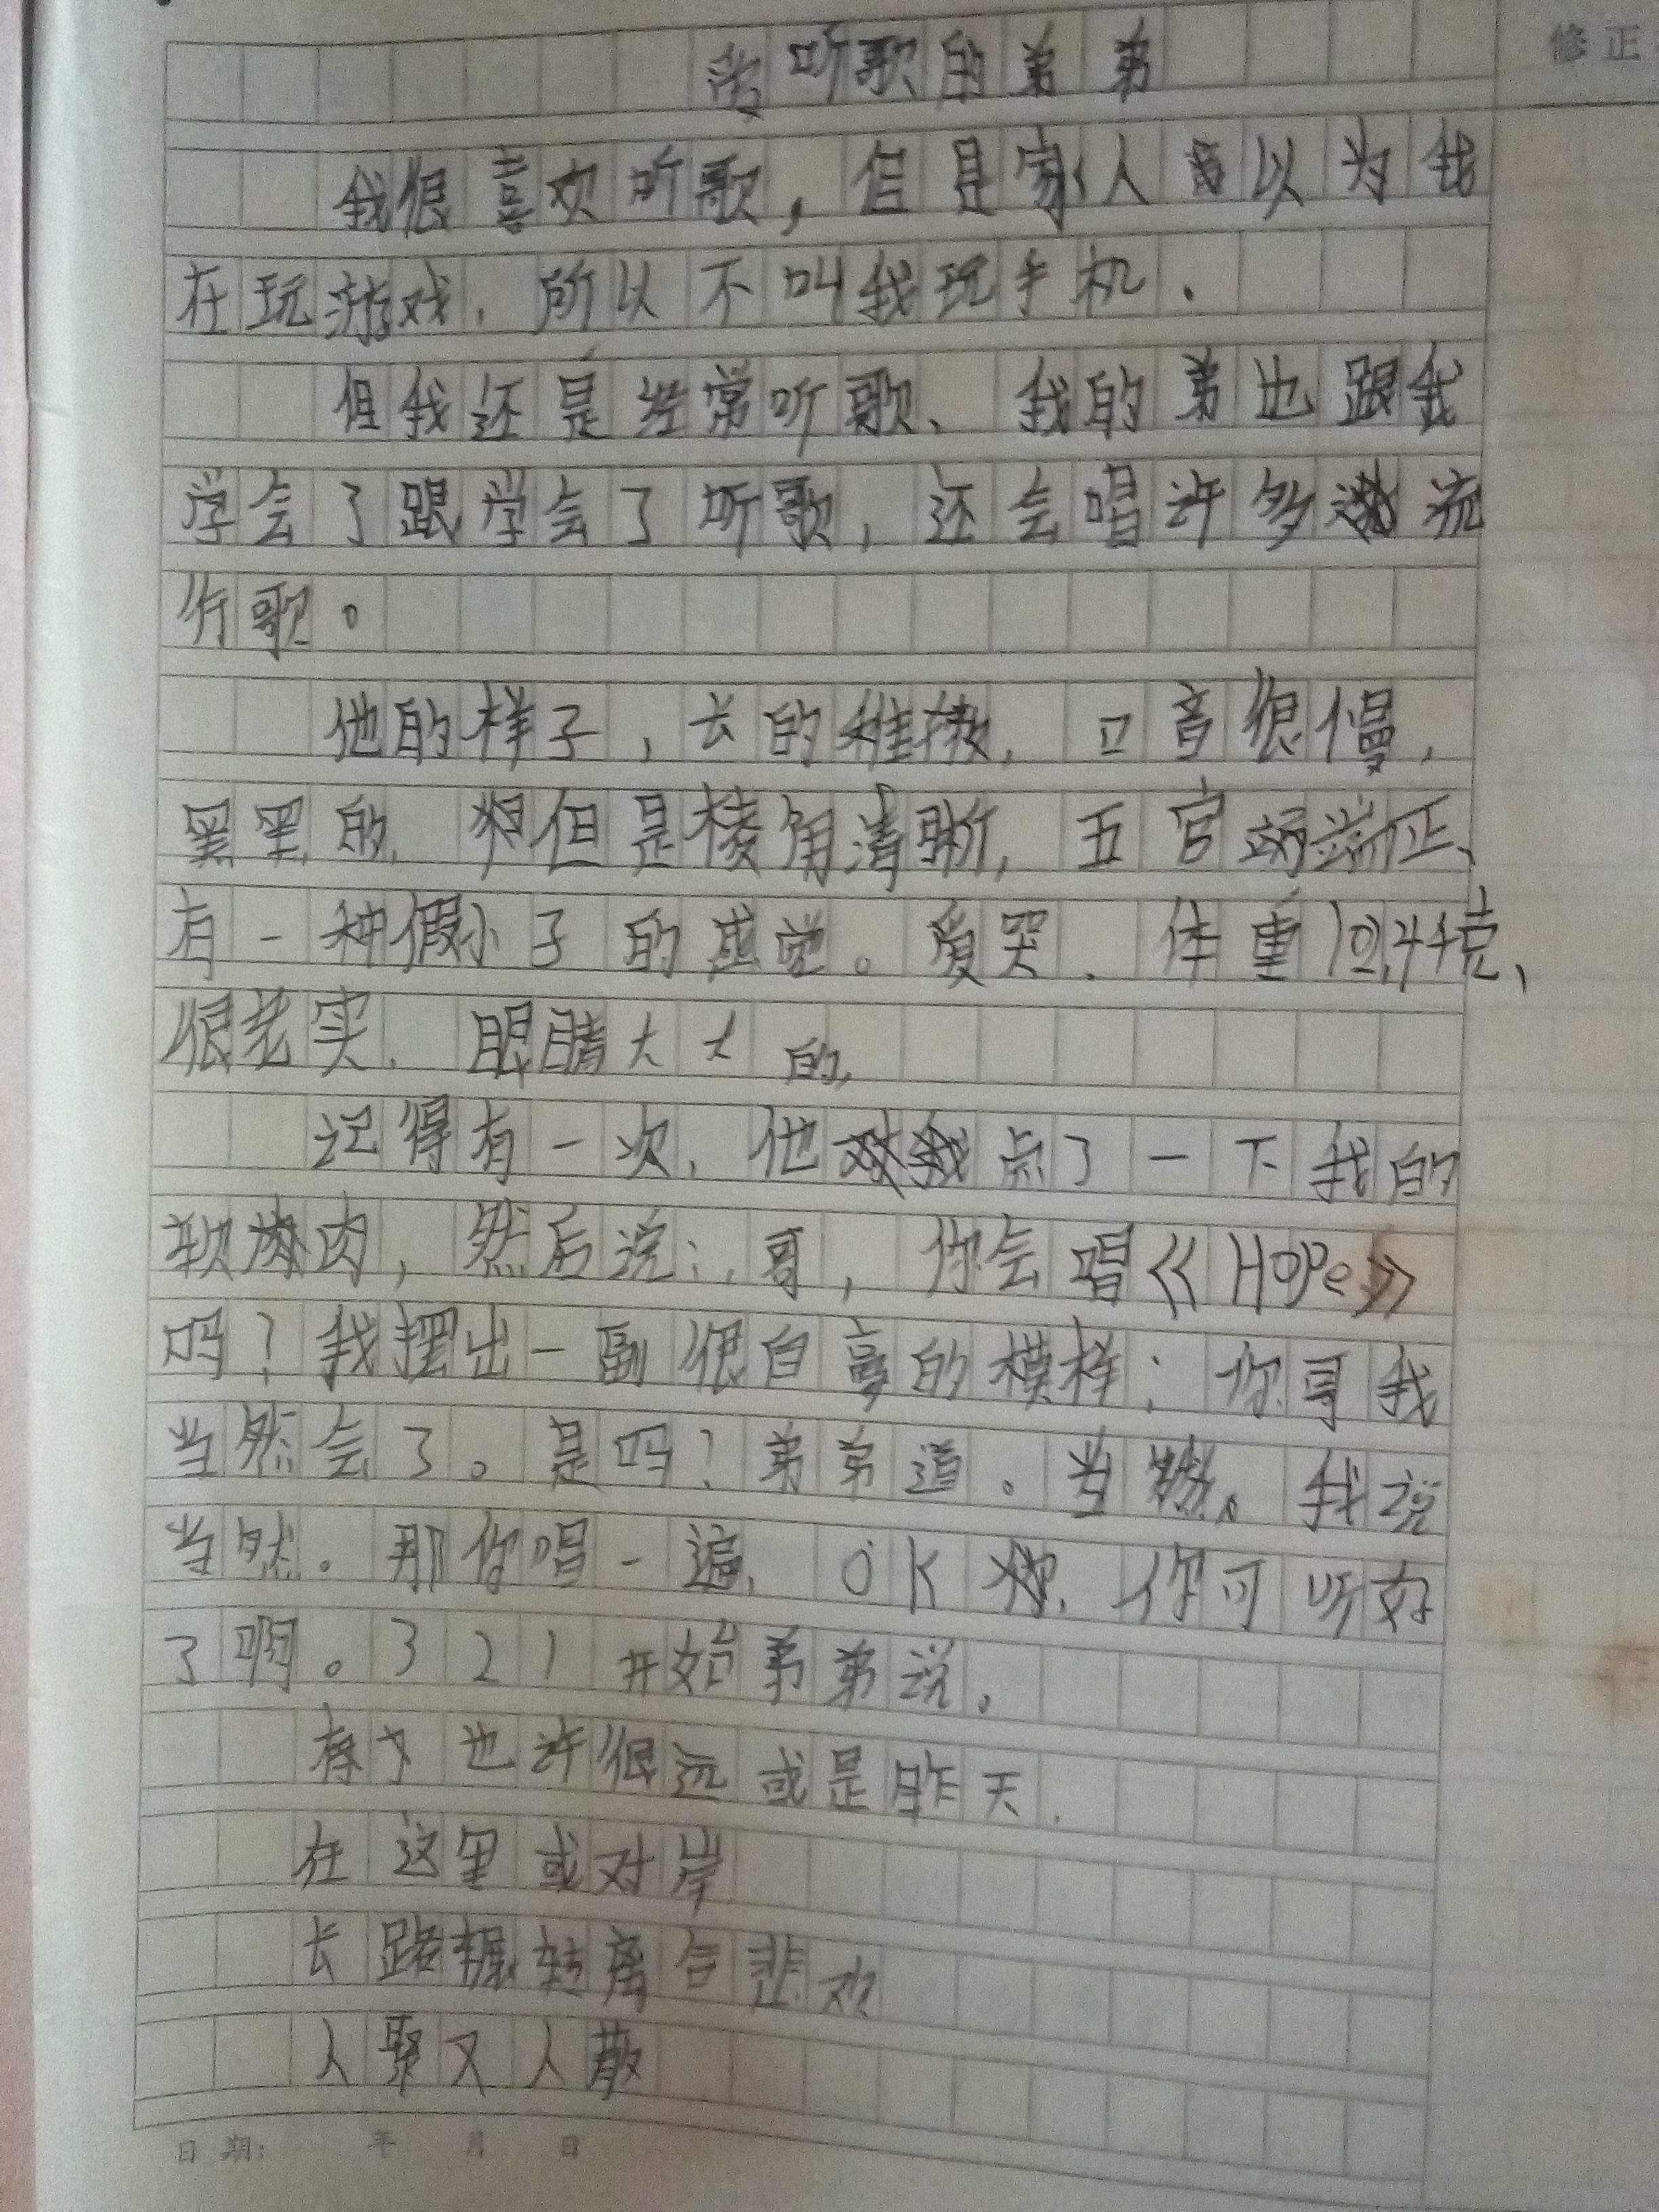 爱听歌的弟弟
修正
我很喜欢听歌，但是家人以为我
在玩游戏，所以不叫我玩手机.
但我还是经常听歌、我的弟也跟我
学会了跟学会了听歌，还会唱许多流
行歌。
他的样子，长的稚嫩，口音很慢，
黑黑的，但是棱角清晰，五官端正、
有一种假小子的感觉。爱哭、体重10.4千克、
很老实、眼睛大大的，
记得有一次，他点了一下我的
软肉，然后说：哥，你会唱《HOPe》
吗？我摆出一副很自豪的模样：你哥我
当然会了。是吗？弟弟道。当然。我说
当然。那你唱一遍，OK，你可听好
了啊。321开始弟弟说。
也许很远或是昨天.
在这里或对岸
长路辗转离合悲欢
人聚又人散
日期： 年 月 日